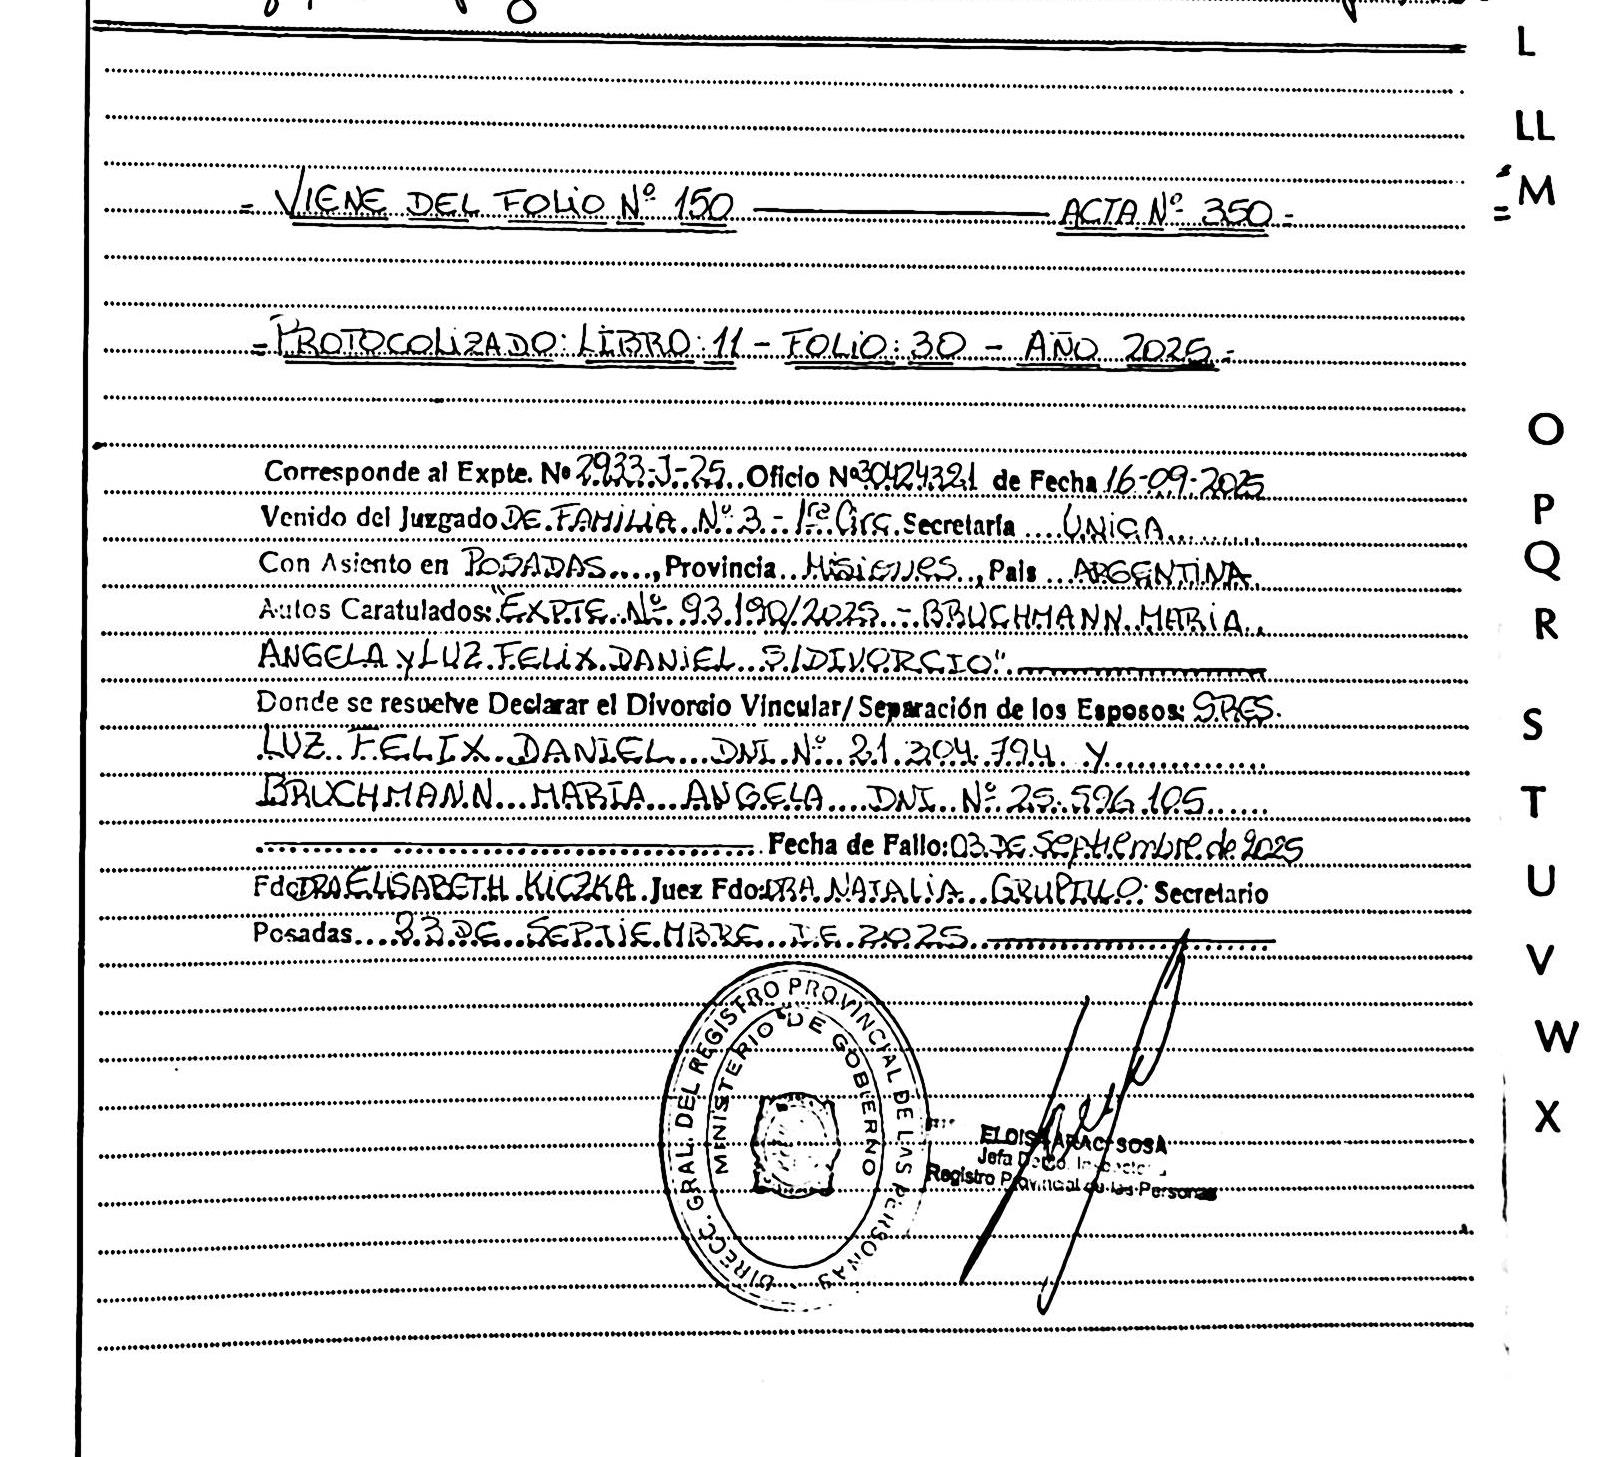 = VIENE DEL FOLIO Nº 150 ACTA Nº 350 =
= PROTOCOLIZADO: LIBRO: 11 - FOLIO: 30 - AÑO 2025 =
Corresponde al Expte. Nº 2933-J-25 Oficio Nº 30424321 de Fecha 16-09-2025
Venido del Juzgado DE FAMILIA Nº 3 - 1re Circ. Secretaría ÚNICA
Con Asiento en POSADAS, Provincia Misiones, Pais ARGENTINA
Autos Caratulados: "EXPTE Nº 93.190/2025 - BRUCHMANN MARIA
ANGELA y LUZ FELIX DANIEL S/DIVORCIO"
Donde se resuelve Declarar el Divorcio Vincular/ Separación de los Esposos: SRES.
LUZ FELIX DANIEL DNI Nº 21.304.794 Y
BRUCHMANN MARIA ANGELA DNI Nº 25.596.105
Fecha de Fallo: 03 DE Septiembre de 2025
Fdo: DRA ELISABETH KICZKA Juez Fdo: DRA NATALIA Secretario
Posadas 23 DE SEPTIEMBRE DE 2025
DIRECC. GRAL. DEL REGISTRO PROVINCIAL DE LAS PERSONAS
MINISTERIO DE GOBIERNO
ELOISA ARACI SOSA
Jefa Dpto.
Registro Provincial de las Personas
L
LL
M
O
P
Q
R
S
T
U
V
W
X